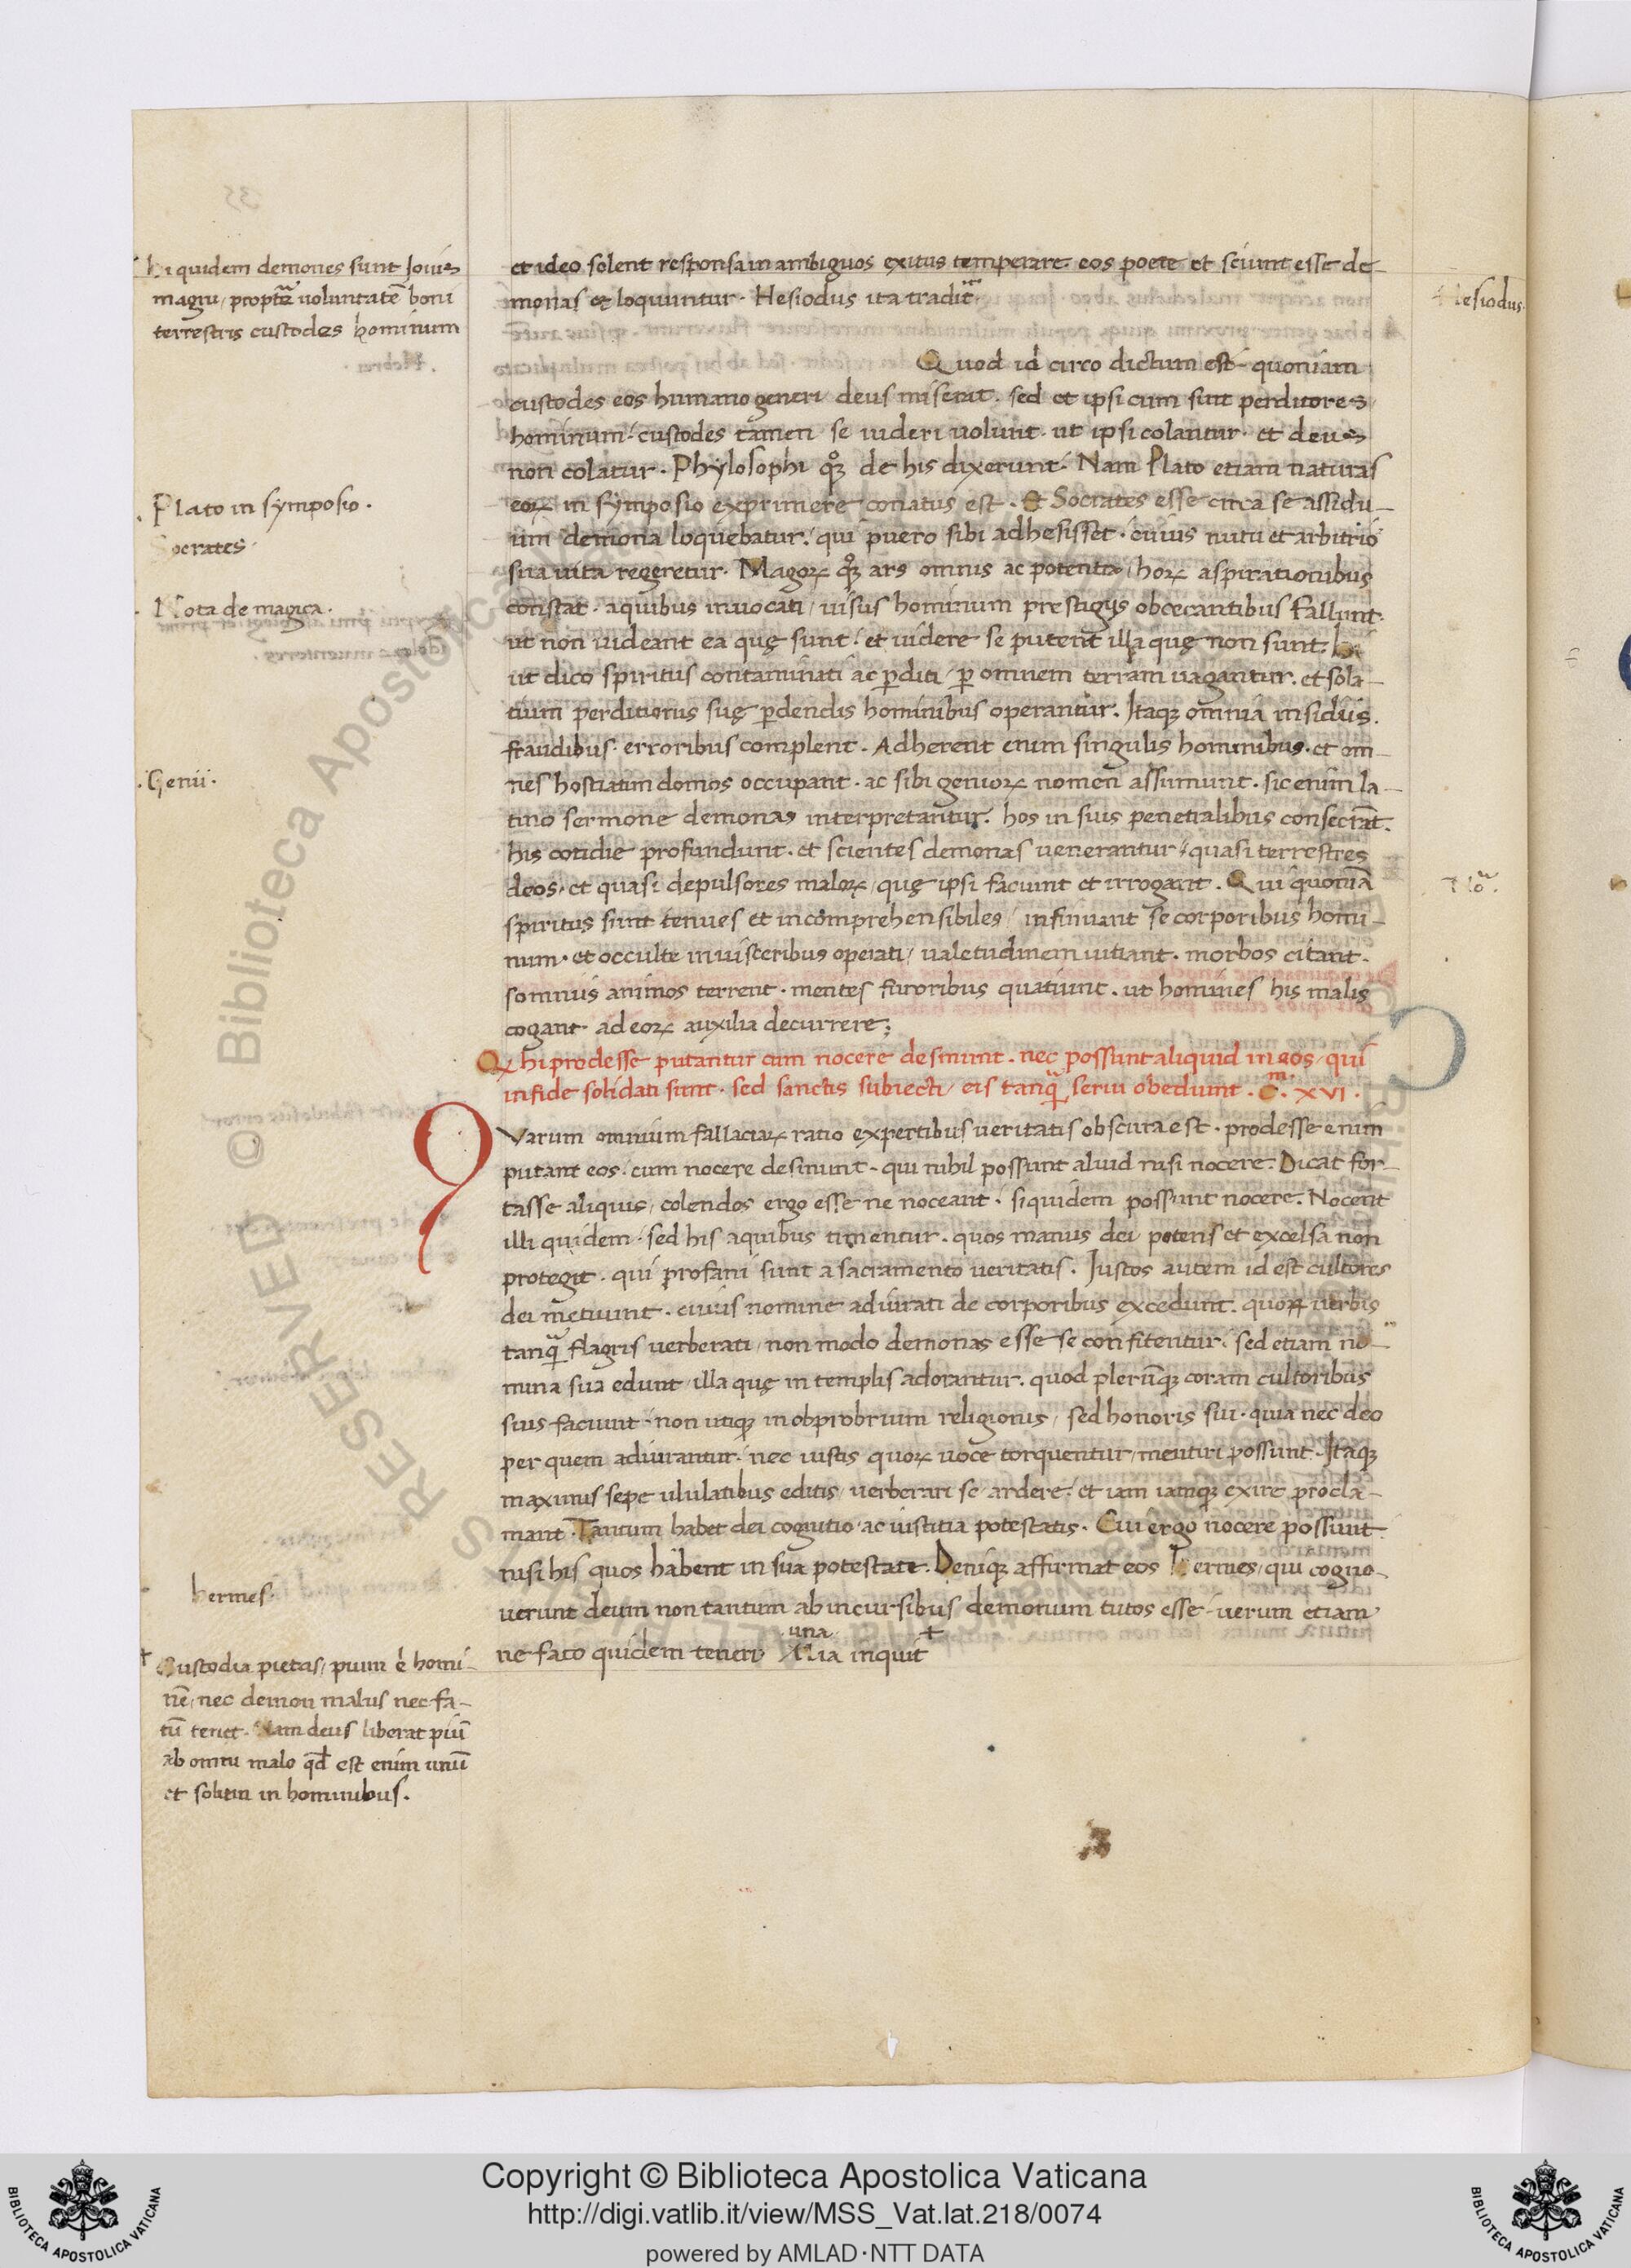 hi quidem demones sunt Iouis
magni, propt̃ uoluntatẽ boni
terrestris custodes hominum
et ideo solent responsa in ambiguos exitus temperare. eos poete et sciunt esse de-
monas et loquuntur. Hesiodus ita tradit
Hesiodus.
Quod id circo dictum est. quoniam
custodes eos humano generi deus miserat. sed et ipsi cum sint perditores
hominum: custodes tamen se uideri uolunt. ut ipsi colantur. et deus
non colatur. Phylosophi qꝫ de his dixerunt. Nam Plato etiam naturas
Plato in symposio.
eoꝝ in symposio exprimere conatus est. Et Socrates esse circa se assidu-
Socrates
um demona loquebatur: qui puero sibi adhesisset. cuius nutu et arbitrio
sua uita regeretur. Magoꝝ qꝫ ars omnis ac potentia, hoꝝ aspirationibus
Nota de magica.
constat. a quibus inuocati, uisus hominum prestigijs obcecantibus fallunt.
ut non uideant ea quę sunt: et uidere se putent illa quę non sunt. hi
ut dico spiritus contaminati ac ꝑditi, ꝑ omnem terram uagantur. et sola-
tium perditionis suę ꝑdendis hominibus operantur. Itaqꝫ omnia insidiis.
fraudibus. erroribus complent. Adherent enim singulis hominibus. et om-
Genii.
nes hostiatim domos occupant. ac sibi genioꝝ nomen assumunt. sic enim la-
tino sermone demonas interpretantur. hos in suis penetralibus consecrãt.
his cotidie profundunt. et scientes demonas uenerantur, quasi terrestres
deos. et quasi depulsores maloꝝ, quę ipsi faciunt et irrogant. Qui quoniã
Noᵃ.
spiritus sunt tenues et incomprehensibiles, insinuant se corporibus homi-
num. et occulte in uisceribus operati, ualetudinem uitiant. morbos citant.
somniis animos terrent. mentes furoribus quatiunt. ut homines his malis
cogant ad eoꝝ auxilia decurrere;
Qꝝ hi prodesse putantur cum nocere desinunt. nec possunt aliquid in eos, qui
in fide solidati sunt. sed sanctis subiecti, eis tanqᷓ serui obediunt. C.ᵐ XVI.
QVarum omnium fallaciaꝝ ratio expertibus ueritatis obscura est. prodesse enim
putant eos. cum nocere desinunt. qui nihil possunt aliud nisi nocere. Dicat for-
tasse aliquis, colendos ergo esse ne noceant. siquidem possunt nocere. Nocent
illi quidem. sed his a quibus timentur. quos manus dei potens et excelsa non
protegit. qui profani sunt a sacramento ueritatis. Iustos autem id est cultores
dei metuunt. cuius nomine adiurati de corporibus excedunt. quoꝝ uerbis
tanqᷓ flagris uerberati, non modo demonas esse se confitentur. sed etiam no-
mina sua edunt, illa quę in templis adorantur. quod plerũqꝫ coram cultoribus
suis faciunt. non utiqꝫ in obprobrium religionis, sed honoris sui. quia nec deo
per quem adiurantur. nec iustis quoꝝ uoce torquentur, mentiri possunt. Itaqꝫ
maximis sepe ululatibus editis, uerberari se, ardere. et iam iamqꝫ exire procla-
mant. Tantum habet dei cognitio ac iustitia potestatis. Cui ergo nocere possunt
nisi his quos habent in sua potestate. Deniqꝫ affirmat eos hermes, qui cogno-
hermes.
uerunt deum non tantum ab incursibus demonum tutos esse. uerum etiam
ne fato quidem teneri. una
Mia inquit +
+ Custodia pietas, pium .n. homi-
nẽ, nec demon malus nec fa-
tũ tenet. Nam deus liberat piũ
ab omni malo qđ est enim unũ
et solum in hominibus.
Copyright © Biblioteca Apostolica Vaticana
http://digi.vatlib.it/view/MSS_Vat.lat.218/0074
powered by AMLAD·NTT DATA
BIBLIOTECA APOSTOLICA VATICANA
BIBLIOTECA APOSTOLICA VATICANA